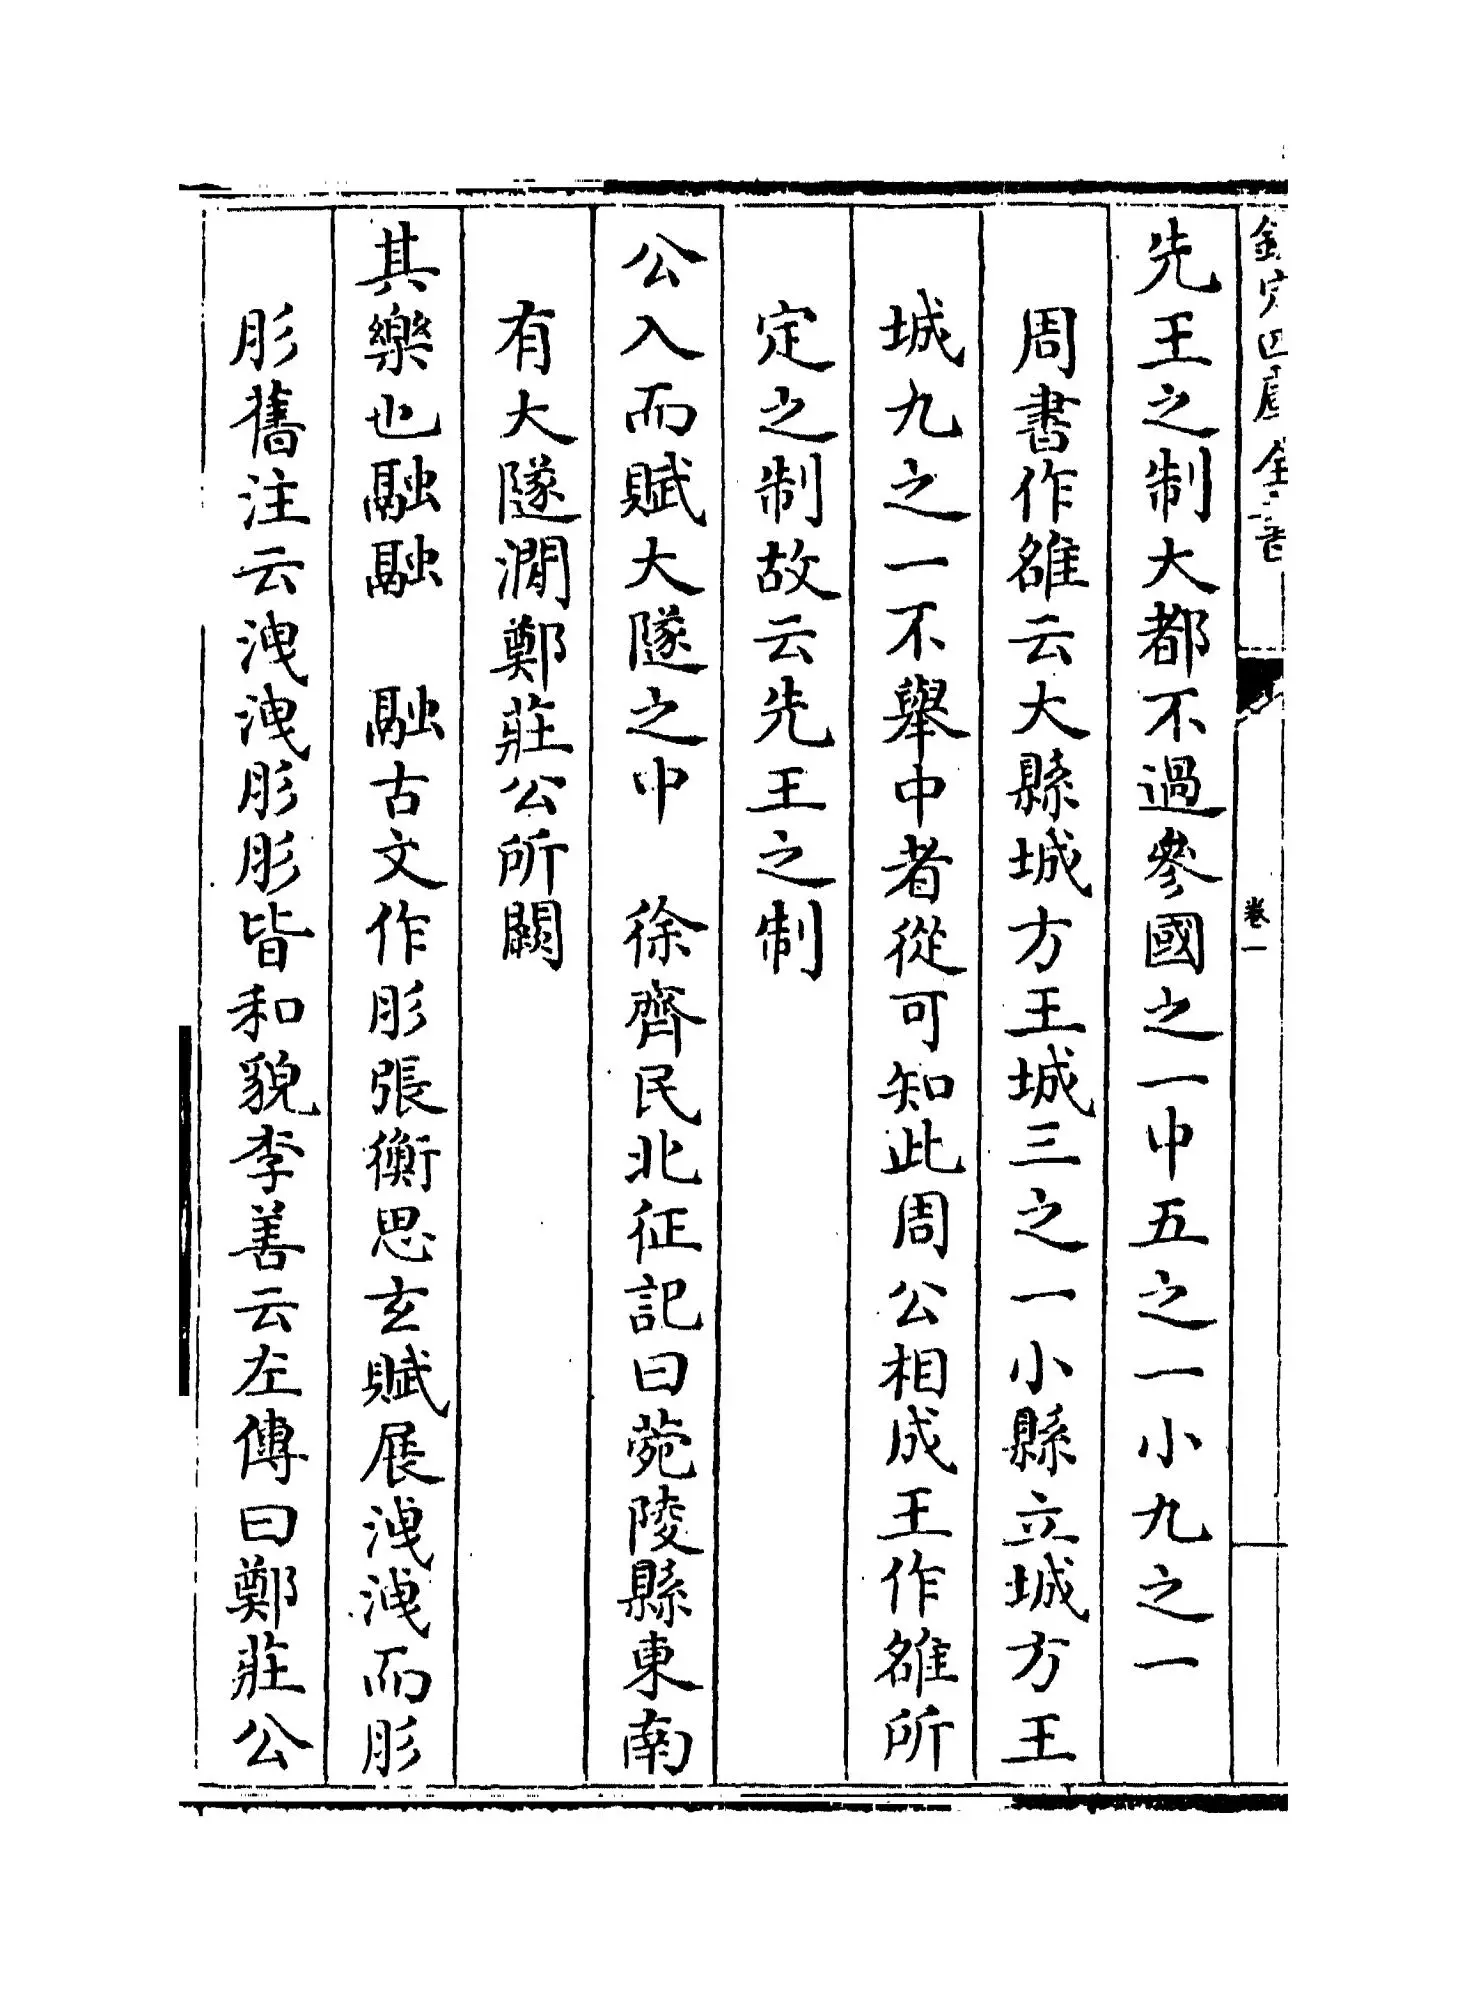 欽定四庫全書
卷一
先王之制大都不過參國之一中五之一小九之一
周書作雒云大縣城方王城三之一小縣立城方王
城九之一不舉中者從可知此周公相成王作雒所
定之制故云先王之制
公入而賦大隧之中　徐齊民北征記曰菀陵縣東南
有大隧澗鄭莊公所闕
其樂也融融　融古文作肜張衡思玄賦展洩洩而肜
肜舊注云洩洩肜肜皆和貌李善云左傳曰鄭莊公